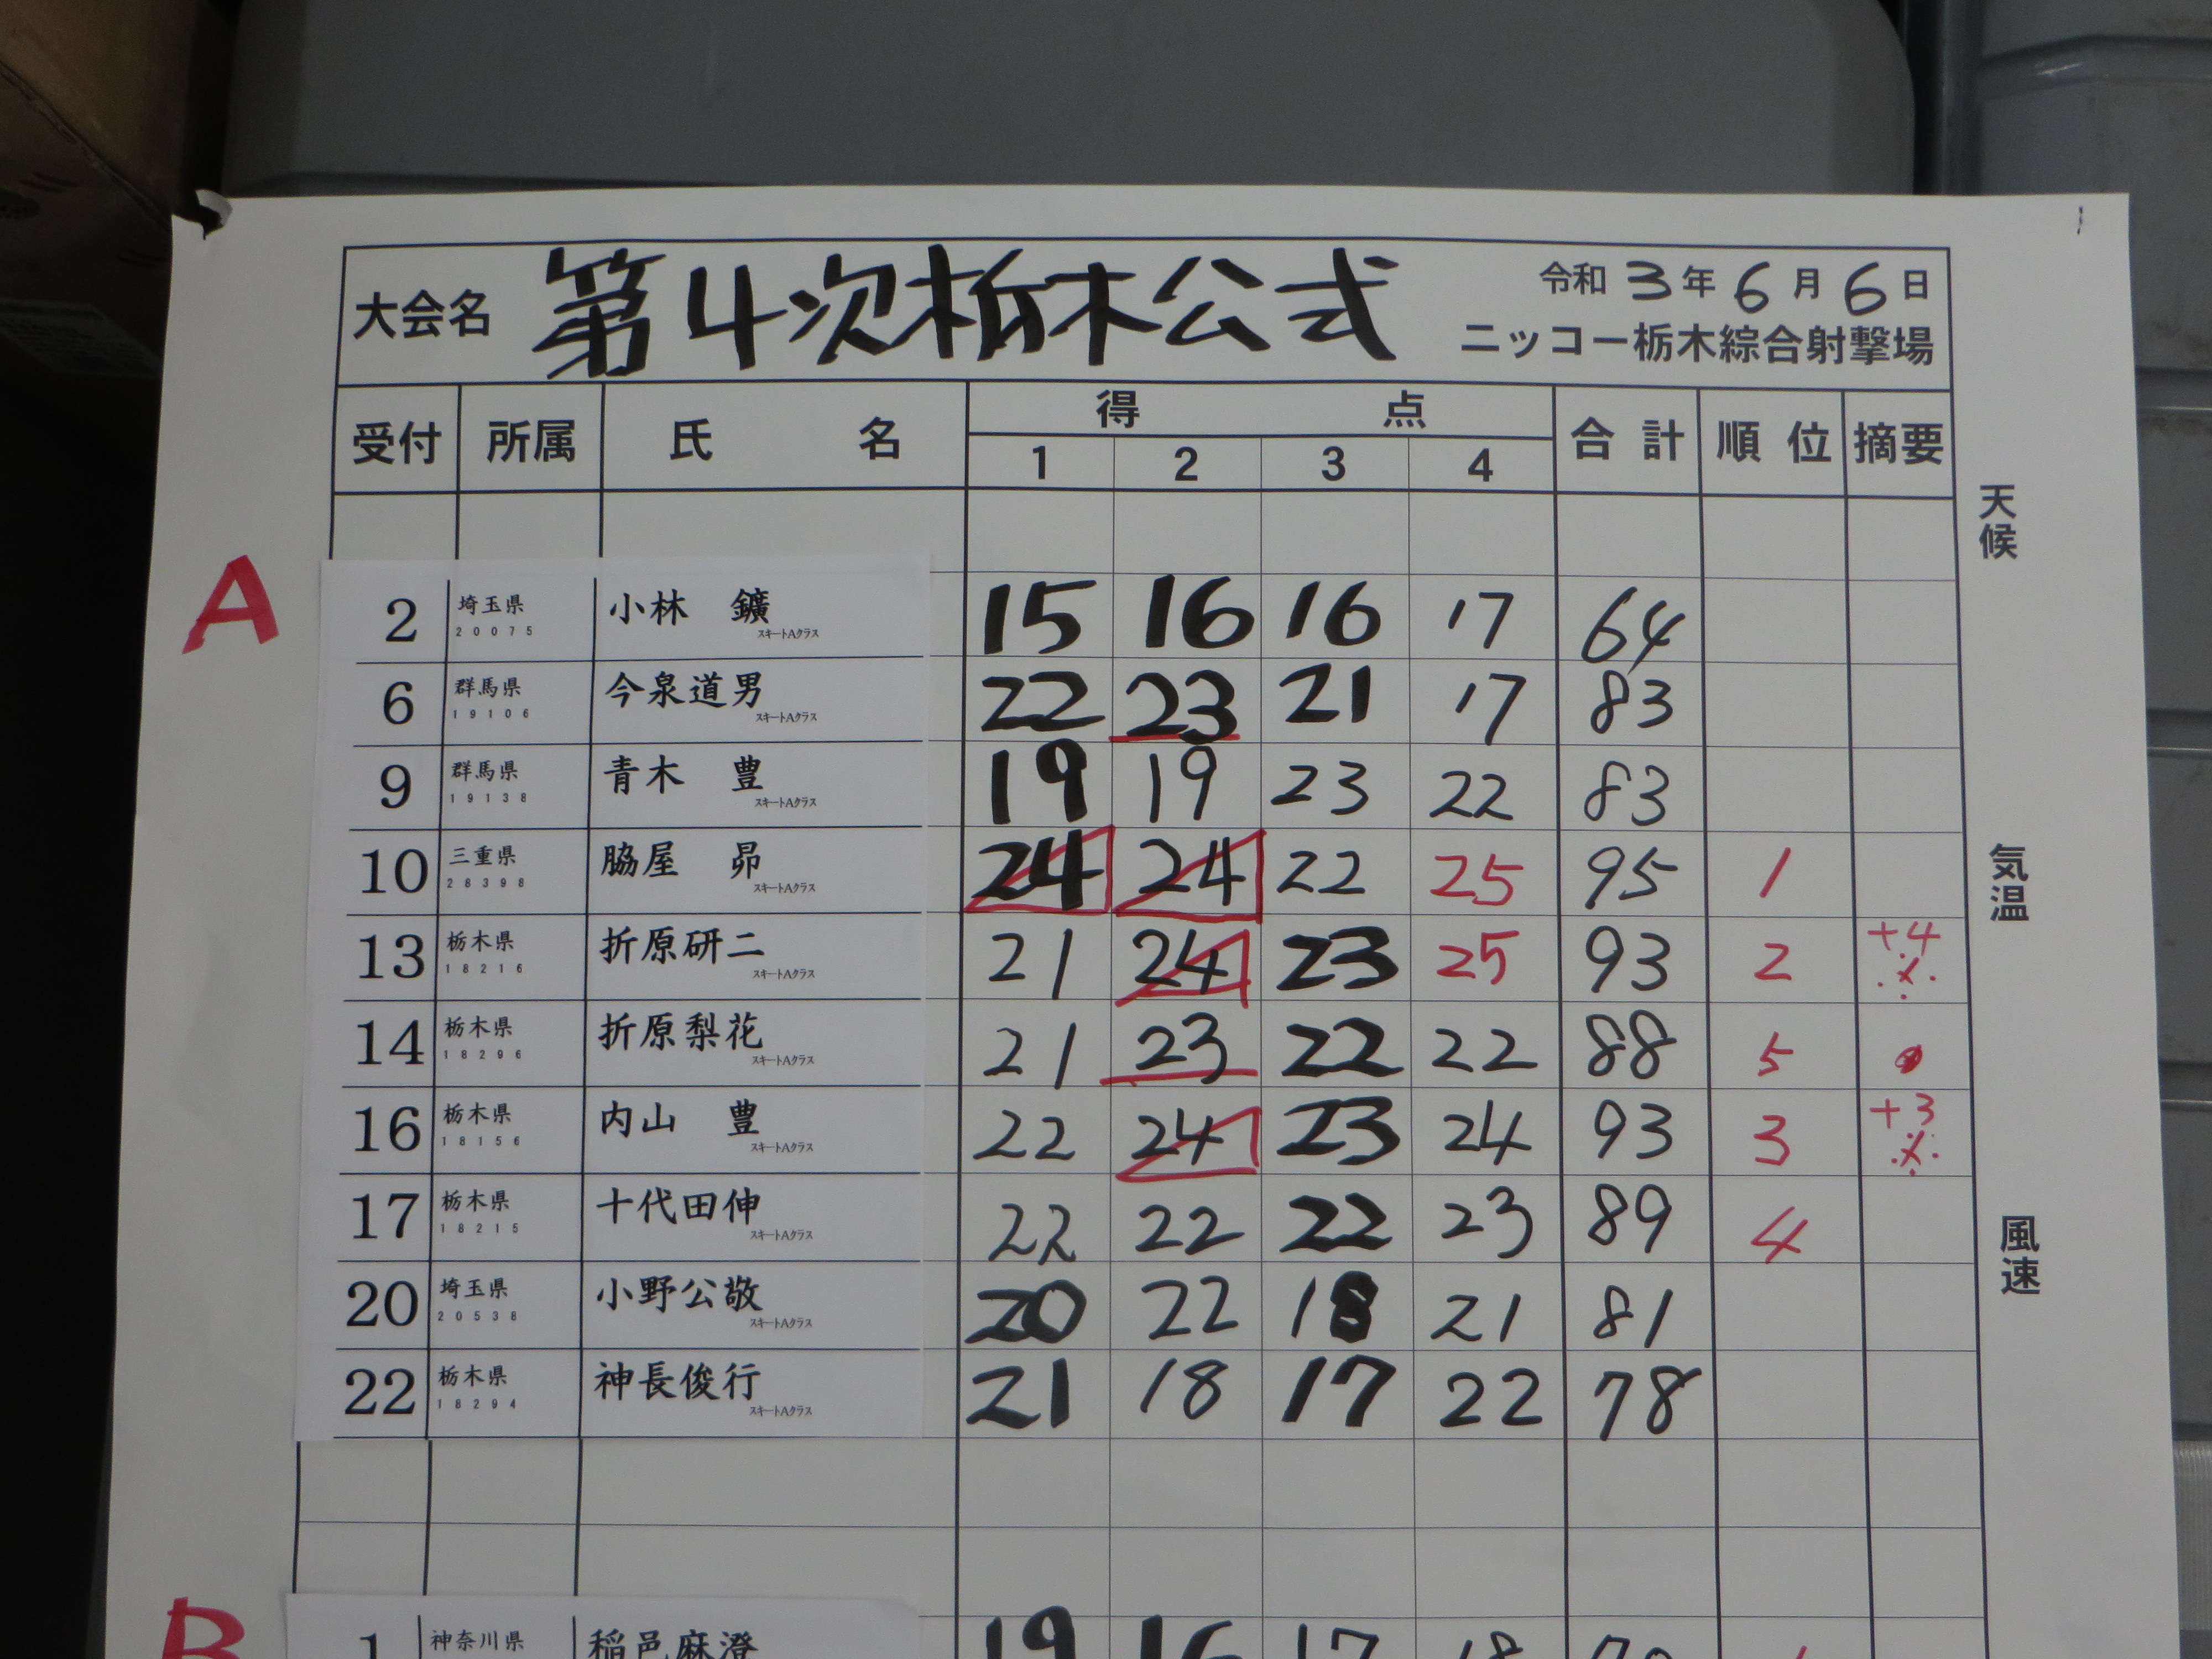 大会名 第4次栃木公式 令和 3年 6月 6日
ニッコー栃木綜合射撃場
受付 所属 氏名 得点 合計 順位 摘要
1 2 3 4
天候
A
2 埼玉県 小林 鑛 15 16 16 17 64
20075 スキートAクラス
6 群馬県 今泉道男 22 23 21 17 83
19106 スキートAクラス
9 群馬県 青木 豊 19 19 23 22 83
19138 スキートAクラス
気温
10 三重県 脇屋 昴 24 24 22 25 95 1
28398 スキートAクラス
13 栃木県 折原研二 21 24 23 25 93 2 +4
18216 スキートAクラス
14 栃木県 折原梨花 21 23 22 22 88 5
18296 スキートAクラス
16 栃木県 内山 豊 22 24 23 24 93 3 +3
18156 スキートAクラス
風速
17 栃木県 十代田伸 22 22 22 23 89 4
18215 スキートAクラス
20 埼玉県 小野公敬 20 22 18 21 81
20538 スキートAクラス
22 栃木県 神長俊行 21 18 17 22 78
18294 スキートAクラス
B
1 神奈川県 稲邑麻澄 19 16 17 18